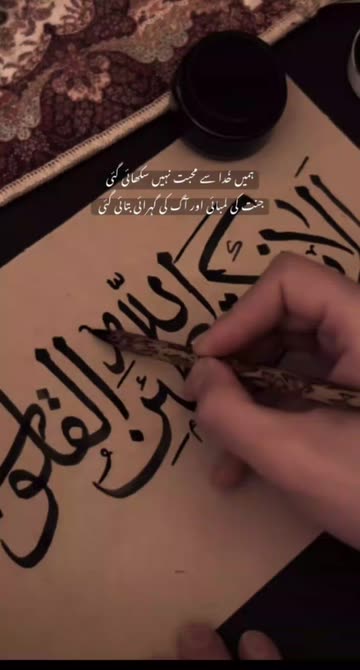 ہمیں خُدا سے محبت نہیں سکھائی گئی
جنت کی لمبائی اور آگ کی گہرائی بتائی گئی
الا
الله
القلو